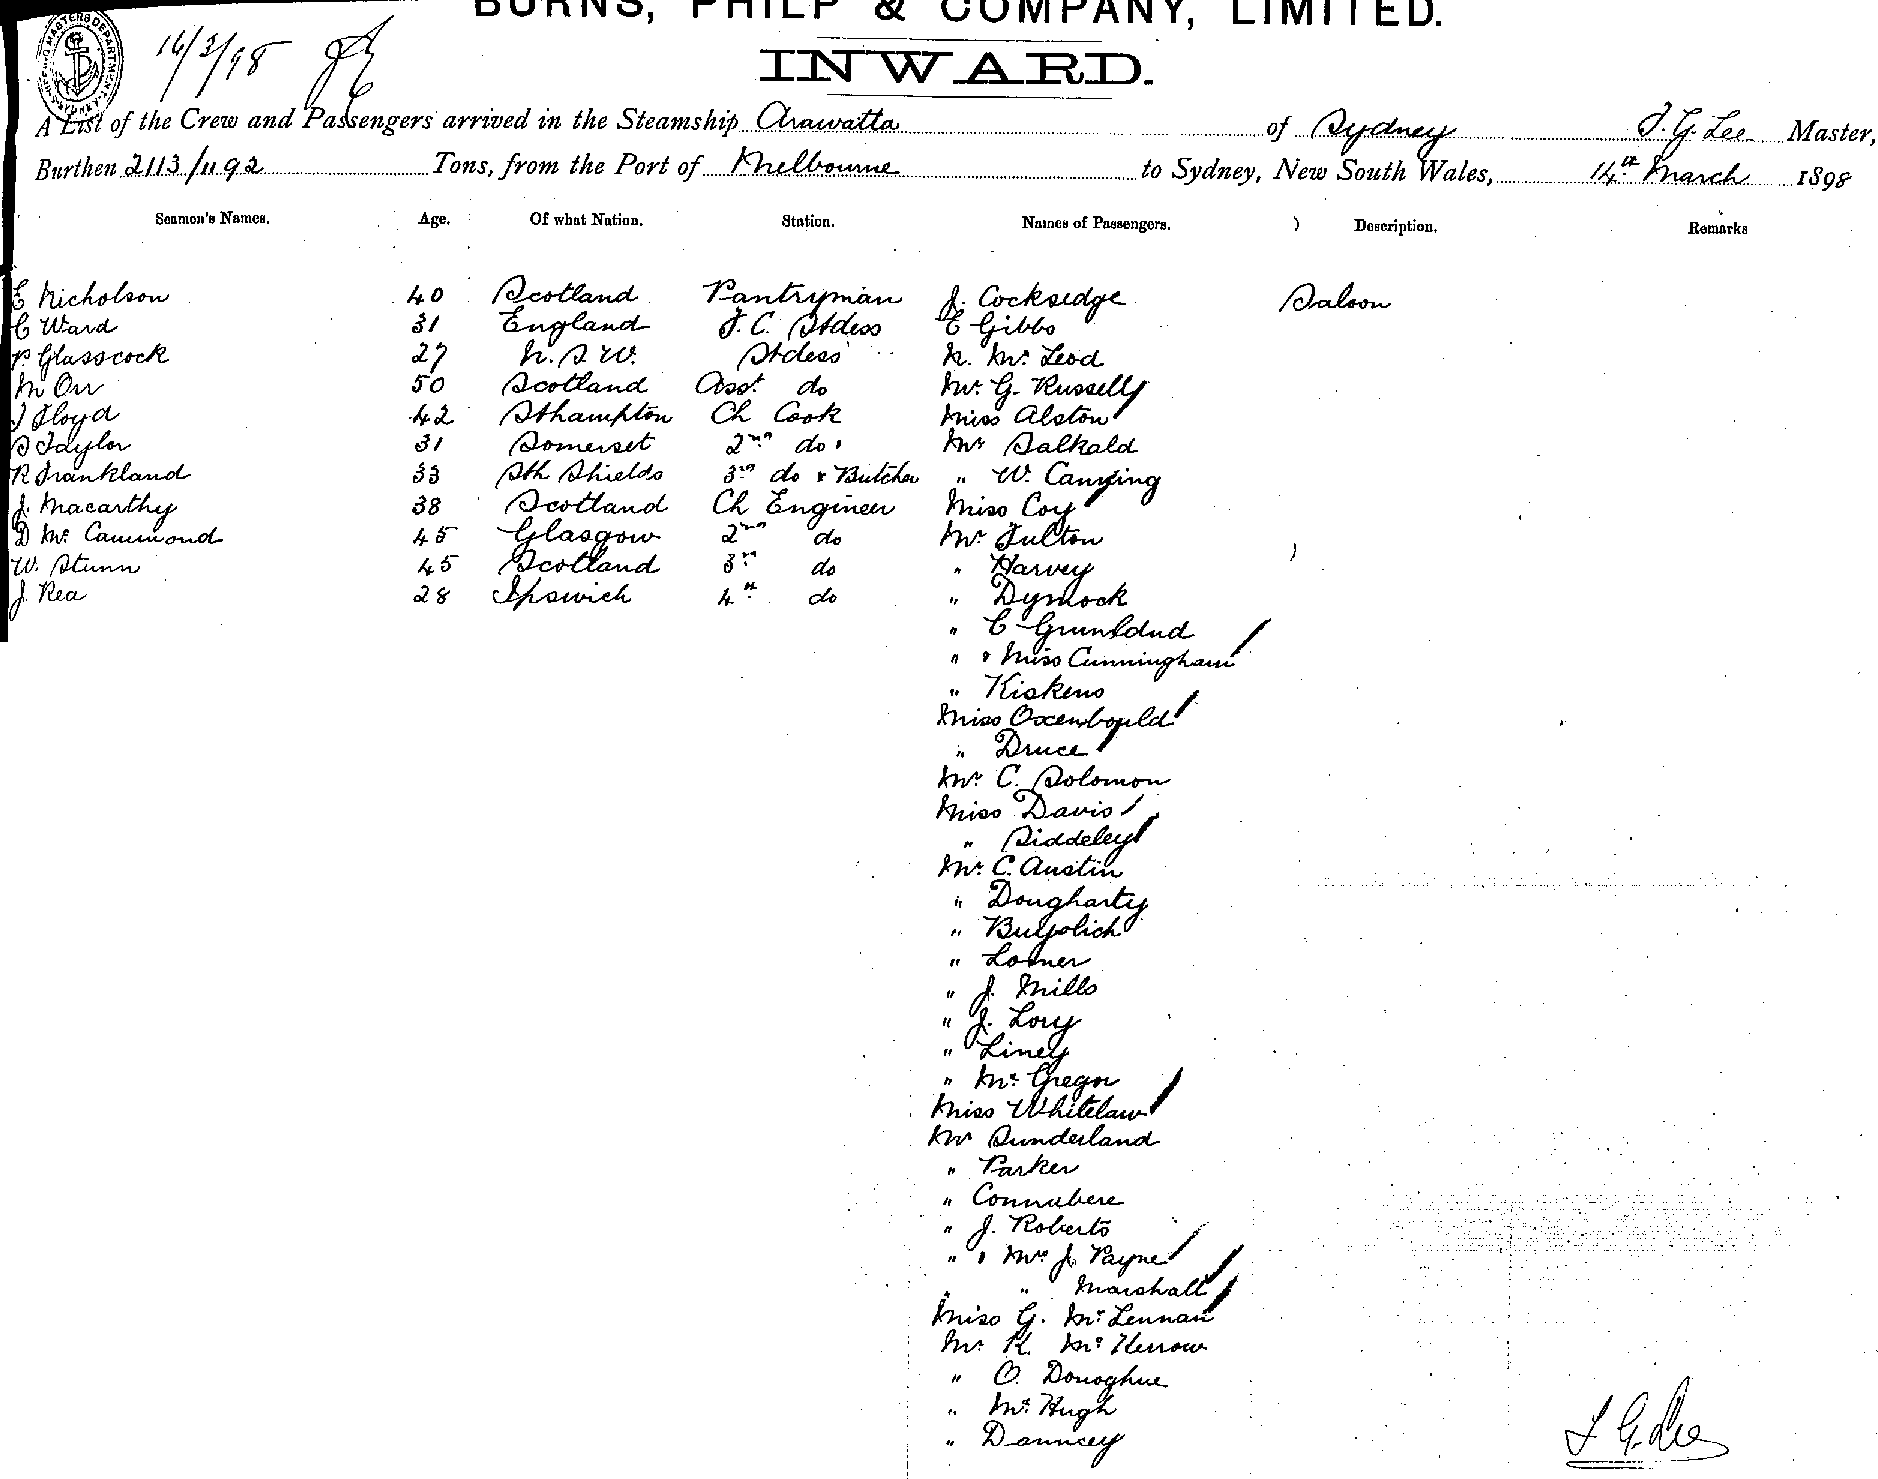 BURNS, PHILP & COMPANY, LIMITED.
INWARD.
14/3/98
A List of the Crew and Passengers arrived in the Steamship Arawatta of Sydney T. G. Lee Master,
Burthen 2113/1192 Tons, from the Port of Melbourne to Sydney, New South Wales, 14th March 1898
Seamen's Names. Age. Of what Nation. Station. Names of Passengers. Description. Remarks
E Nicholson 40 Scotland Pantryman J. Cocksedge Saloon
C Ward 31 England F. C. Stdess E Gibbs
P. Glasscock 27 N. S. W. Stdess N. Mc Leod
M Orr 50 Scotland Asst. do Mr. G. Russell
J Floyd 42 Sthampton Ch Cook Miss Alston
S Taylor 31 Somerset 2nd do. Mr Salkald
R Frankland 33 Sth Shields 3rd do & Butcher " W. Canning
J. Macarthy 38 Scotland Ch Engineer Miss Coy
D Mc Cammond 45 Glasgow 2nd do Mr Fulton
W. Stunn 45 Scotland 3rd do " Harvey
J. Rea 28 Ipswich 4th do " Dymock
" C
" & Miss Cunningham
" Kiskens
Miss Oxenbould
" Druce
Mr. C. Solomon
Miss Davis
" Siddeley
Mr. C. Austin
" Dougharty
"
" Losner
" J. Mills
" J. Lory
" Liney
" Mc Gregor
Miss Whitelaw
Mr Sunderland
" Parker
" Connubere
" J. Roberts
" & Mrs J. Payne
" " Marshall
Miss G. Mc Lennan
Mr. K. Mc Kerrow
" O. Donoghue
" Mc Hugh
" Dauncey
T G. Lee